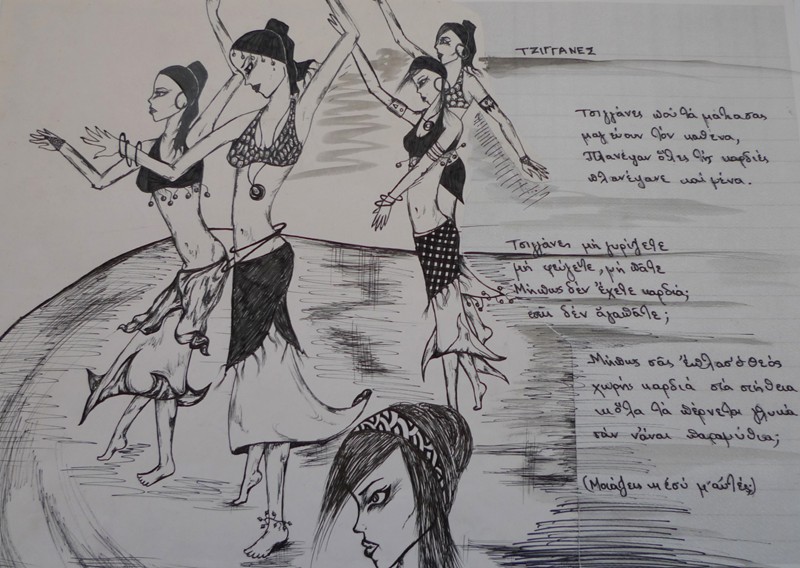 ΤΖΙΓΓΑΝΕΣ
Τσιγγάνες ποὺ τὰ μάτια σας
μαγεύουν τὸν καθένα,
Πλανέψαν ὅλες τὶς καρδιές
πλανέψανε καὶ μένα.
Τσιγγάνες μὴ γυρίζετε
μὴ φεύγετε, μὴ πᾶτε
Μήπως δὲν ἔχετε καρδιά;
ἐσεῖς δὲν ἀγαπᾶτε;
Μήπως σᾶς ἔπλασ' ὁ Θεός
χωρὶς καρδιά στὰ στήθεια
κι ὅλα τὰ πέρνεται γλυκά
σὰν νἆναι παραμύθια;
(Μοιάζεις κι ἐσύ μ' αὐτές;)